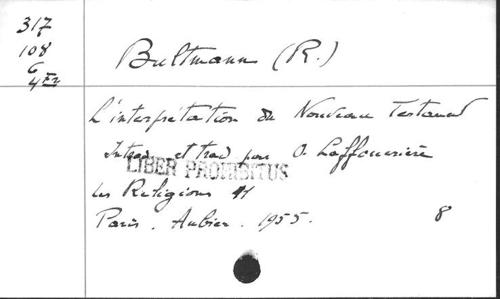 317
108
C
4 Ex
Bultmann (R.)
L'interprétation du Nouveau Testament
Introd. et trad par O. Laffoucrière
LIBER PROHIBITUS
Les Religions 11
Paris. Aubier. 1955. 8